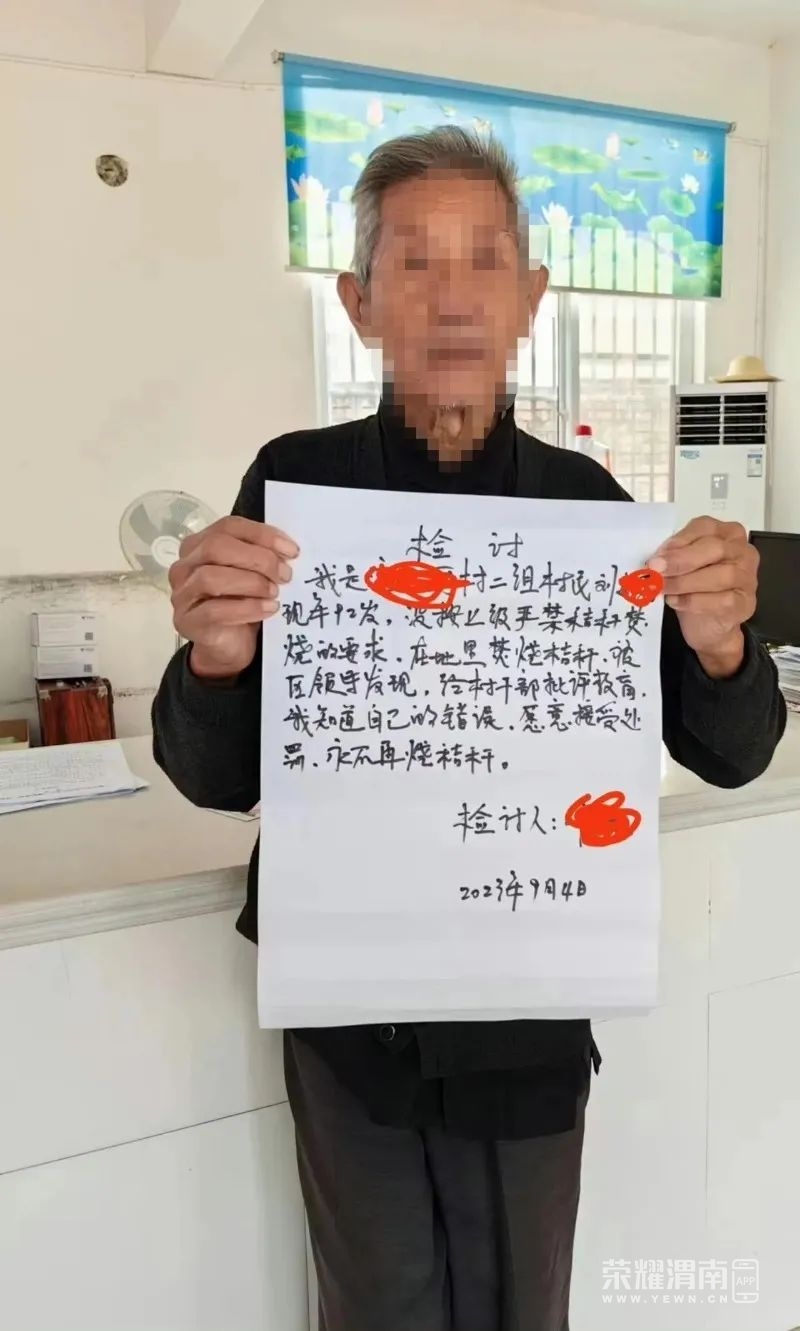 检 讨
我是 村二组村民刘
现年92岁，没按上级严禁秸秆焚
烧的要求、在地里焚烧秸秆、被
区领导发现，给村干部批评教育，
我知道自己的错误、愿意接受处
罚、永不再烧秸秆。
检讨人：
2023年9月4日
荣耀渭南 APP
WWW.YEWN.CN